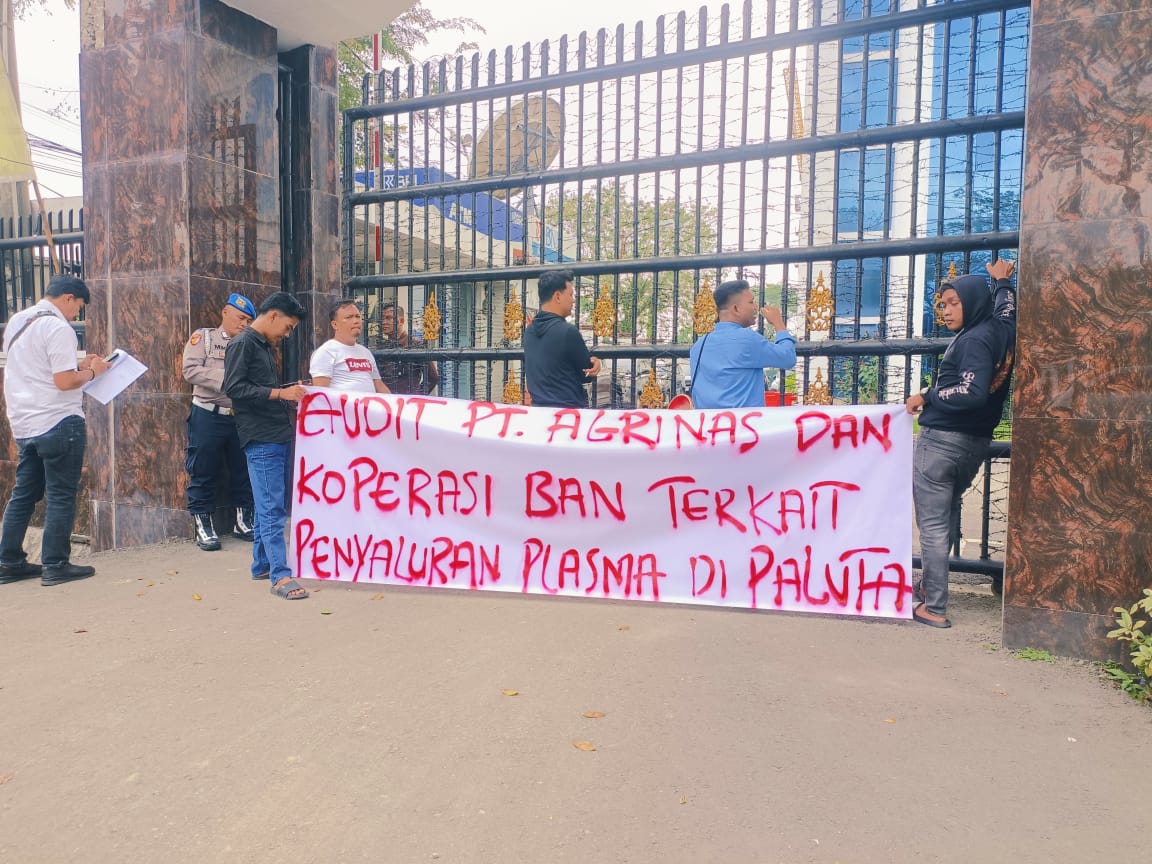 EUDIT PT. AGRINAS DAN
KOPERASI BAN TERKAIT
PENYALURAN PLASMA DI PALUTA
Levi's